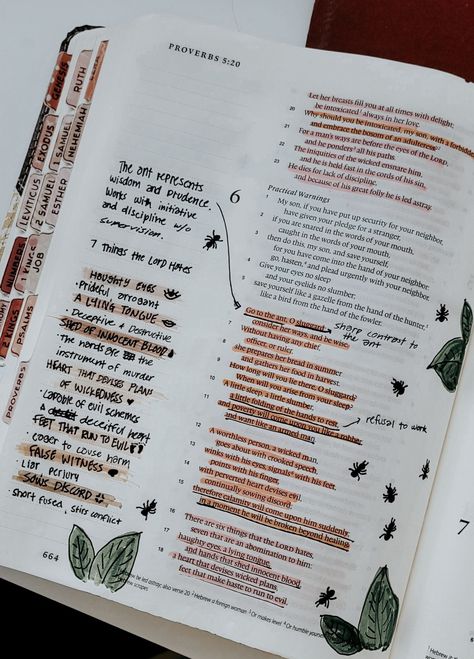 PROVERBS 5:20
GENESIS
RUTH
EXODUS
1 SAMUEL
NEHEMIAH
LEVITICUS
2 SAMUEL
ESTHER
NUMBERS
1 KINGS
JOB
2 KINGS
PSALMS
PROVERBS
The ant represents
wisdom and prudence.
Works with initiative
and discipline w/o
supervision.
7 Things the Lord Hates
HAUGHTY EYES
• Prideful arrogant
A LYING TONGUE
• Deceptive & Destructive
SHED OF INNOCENT BLOOD
The hands are the
instrument of murder
HEART THAT DEVISES PLANS
OF WICKEDNESS
Capable of evil schemes
a deceitful heart
FEET THAT RUN TO EVIL
eager to cause harm
FALSE WITNESS
• Liar perjury
SOWS DISCORD
short fused, stirs conflict
664
Let her breasts fill you at all times with delight;
be intoxicated always in her love.
20 Why should you be intoxicated, my son, with a forbidden
and embrace the bosom of an adulteress?
21 For a man's ways are before the eyes of the LORD,
and he ponders all his paths.
22 The iniquities of the wicked ensnare him,
and he is held fast in the cords of his sin.
23 He dies for lack of discipline,
and because of his great folly he is led astray.
Practical Warnings
6 My son, if you have put up security for your neighbor,
have given your pledge for a stranger,
2 if you are snared in the words of your mouth,
caught in the words of your mouth,
3 then do this, my son, and save yourself,
for you have come into the hand of your neighbor:
go, hasten, and plead urgently with your neighbor.
4 Give your eyes no sleep
and your eyelids no slumber;
5 save yourself like a gazelle from the hand of the hunter,
like a bird from the hand of the fowler.
6 Go to the ant, O sluggard;
consider her ways, and be wise.
sharp contrast to
the ant
7 Without having any chief,
officer, or ruler,
8 she prepares her bread in summer
and gathers her food in harvest.
9 How long will you lie there, O sluggard?
When will you arise from your sleep?
10 A little sleep, a little slumber,
a little folding of the hands to rest,
refusal to work
11 and poverty will come upon you like a robber,
and want like an armed man.
12 A worthless person, a wicked man,
goes about with crooked speech,
13 winks with his eyes, signals with his feet,
points with his finger,
14 with perverted heart devises evil,
continually sowing discord;
15 therefore calamity will come upon him suddenly;
in a moment he will be broken beyond healing.
16 There are six things that the LORD hates,
seven that are an abomination to him:
17 haughty eyes, a lying tongue,
and hands that shed innocent blood,
18 a heart that devises wicked plans,
feet that make haste to run to evil,
be led astray; also verse 20 2 Hebrew a foreign woman 3 Or makes level 4 Or humble yourself
scrapes
7